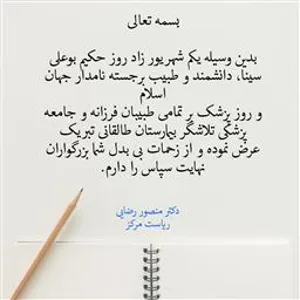 بسمه تعالی
بدین وسیله یکم شهریور زاد روز حکیم بوعلی
سینا، دانشمند و طبیب برجسته نامدار جهان
اسلام
و روز پزشک بر تمامی طبیبان فرزانه و جامعه
پزشکی تلاشگر بیمارستان طالقانی تبریک
عرض نموده و از زحمات بی بدل شما بزرگواران
نهایت سپاس را دارم.
دکتر منصور رضایی
ریاست مرکز